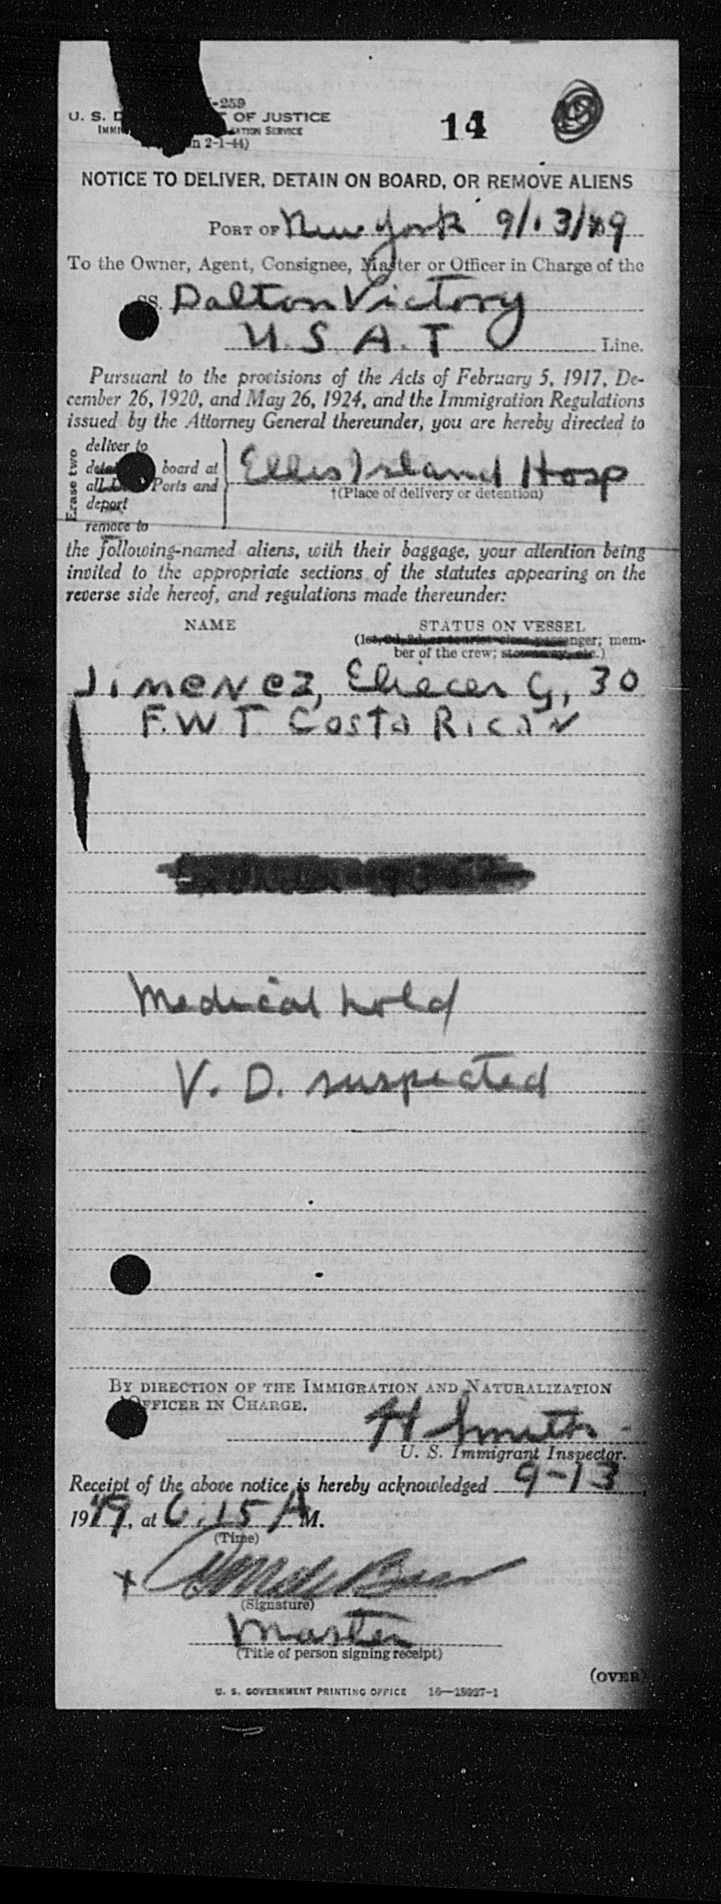 -259
U. S. D OF JUSTICE
IMMI ATION SERVICE
n 2-1-44)
14
NOTICE TO DELIVER, DETAIN ON BOARD, OR REMOVE ALIENS
PORT OF New York 9/13/49
To the Owner, Agent, Consignee, Master or Officer in Charge of the
SS. Dalton Victory
U. S. A. T Line.
Pursuant to the provisions of the Acts of February 5, 1917, De-
cember 26, 1920, and May 26, 1924, and the Immigration Regulations
issued by the Attorney General thereunder, you are hereby directed to
Erase two
deliver to
board at
all Ports and
deport
remove to
Ellis Island Hosp
†(Place of delivery or detention)
the following-named aliens, with their baggage, your attention being
invited to the appropriate sections of the statutes appearing on the
reverse side hereof, and regulations made thereunder:
NAME STATUS ON VESSEL
(1st, 2d, 3d, or tourist class passenger; mem-
ber of the crew; stowaway, etc.)
Jimenez, Eliecer G, 30
F.W.T. Costa Rican
Medical hold
V. D. suspected
BY DIRECTION OF THE IMMIGRATION AND NATURALIZATION
OFFICER IN CHARGE.
H Smith
U. S. Immigrant Inspector.
Receipt of the above notice is hereby acknowledged 9-13,
1949, at 6:15 A M.
(Time)
x
(Signature)
Master
(Title of person signing receipt)
(OVER)
U. S. GOVERNMENT PRINTING OFFICE 16—15927-1